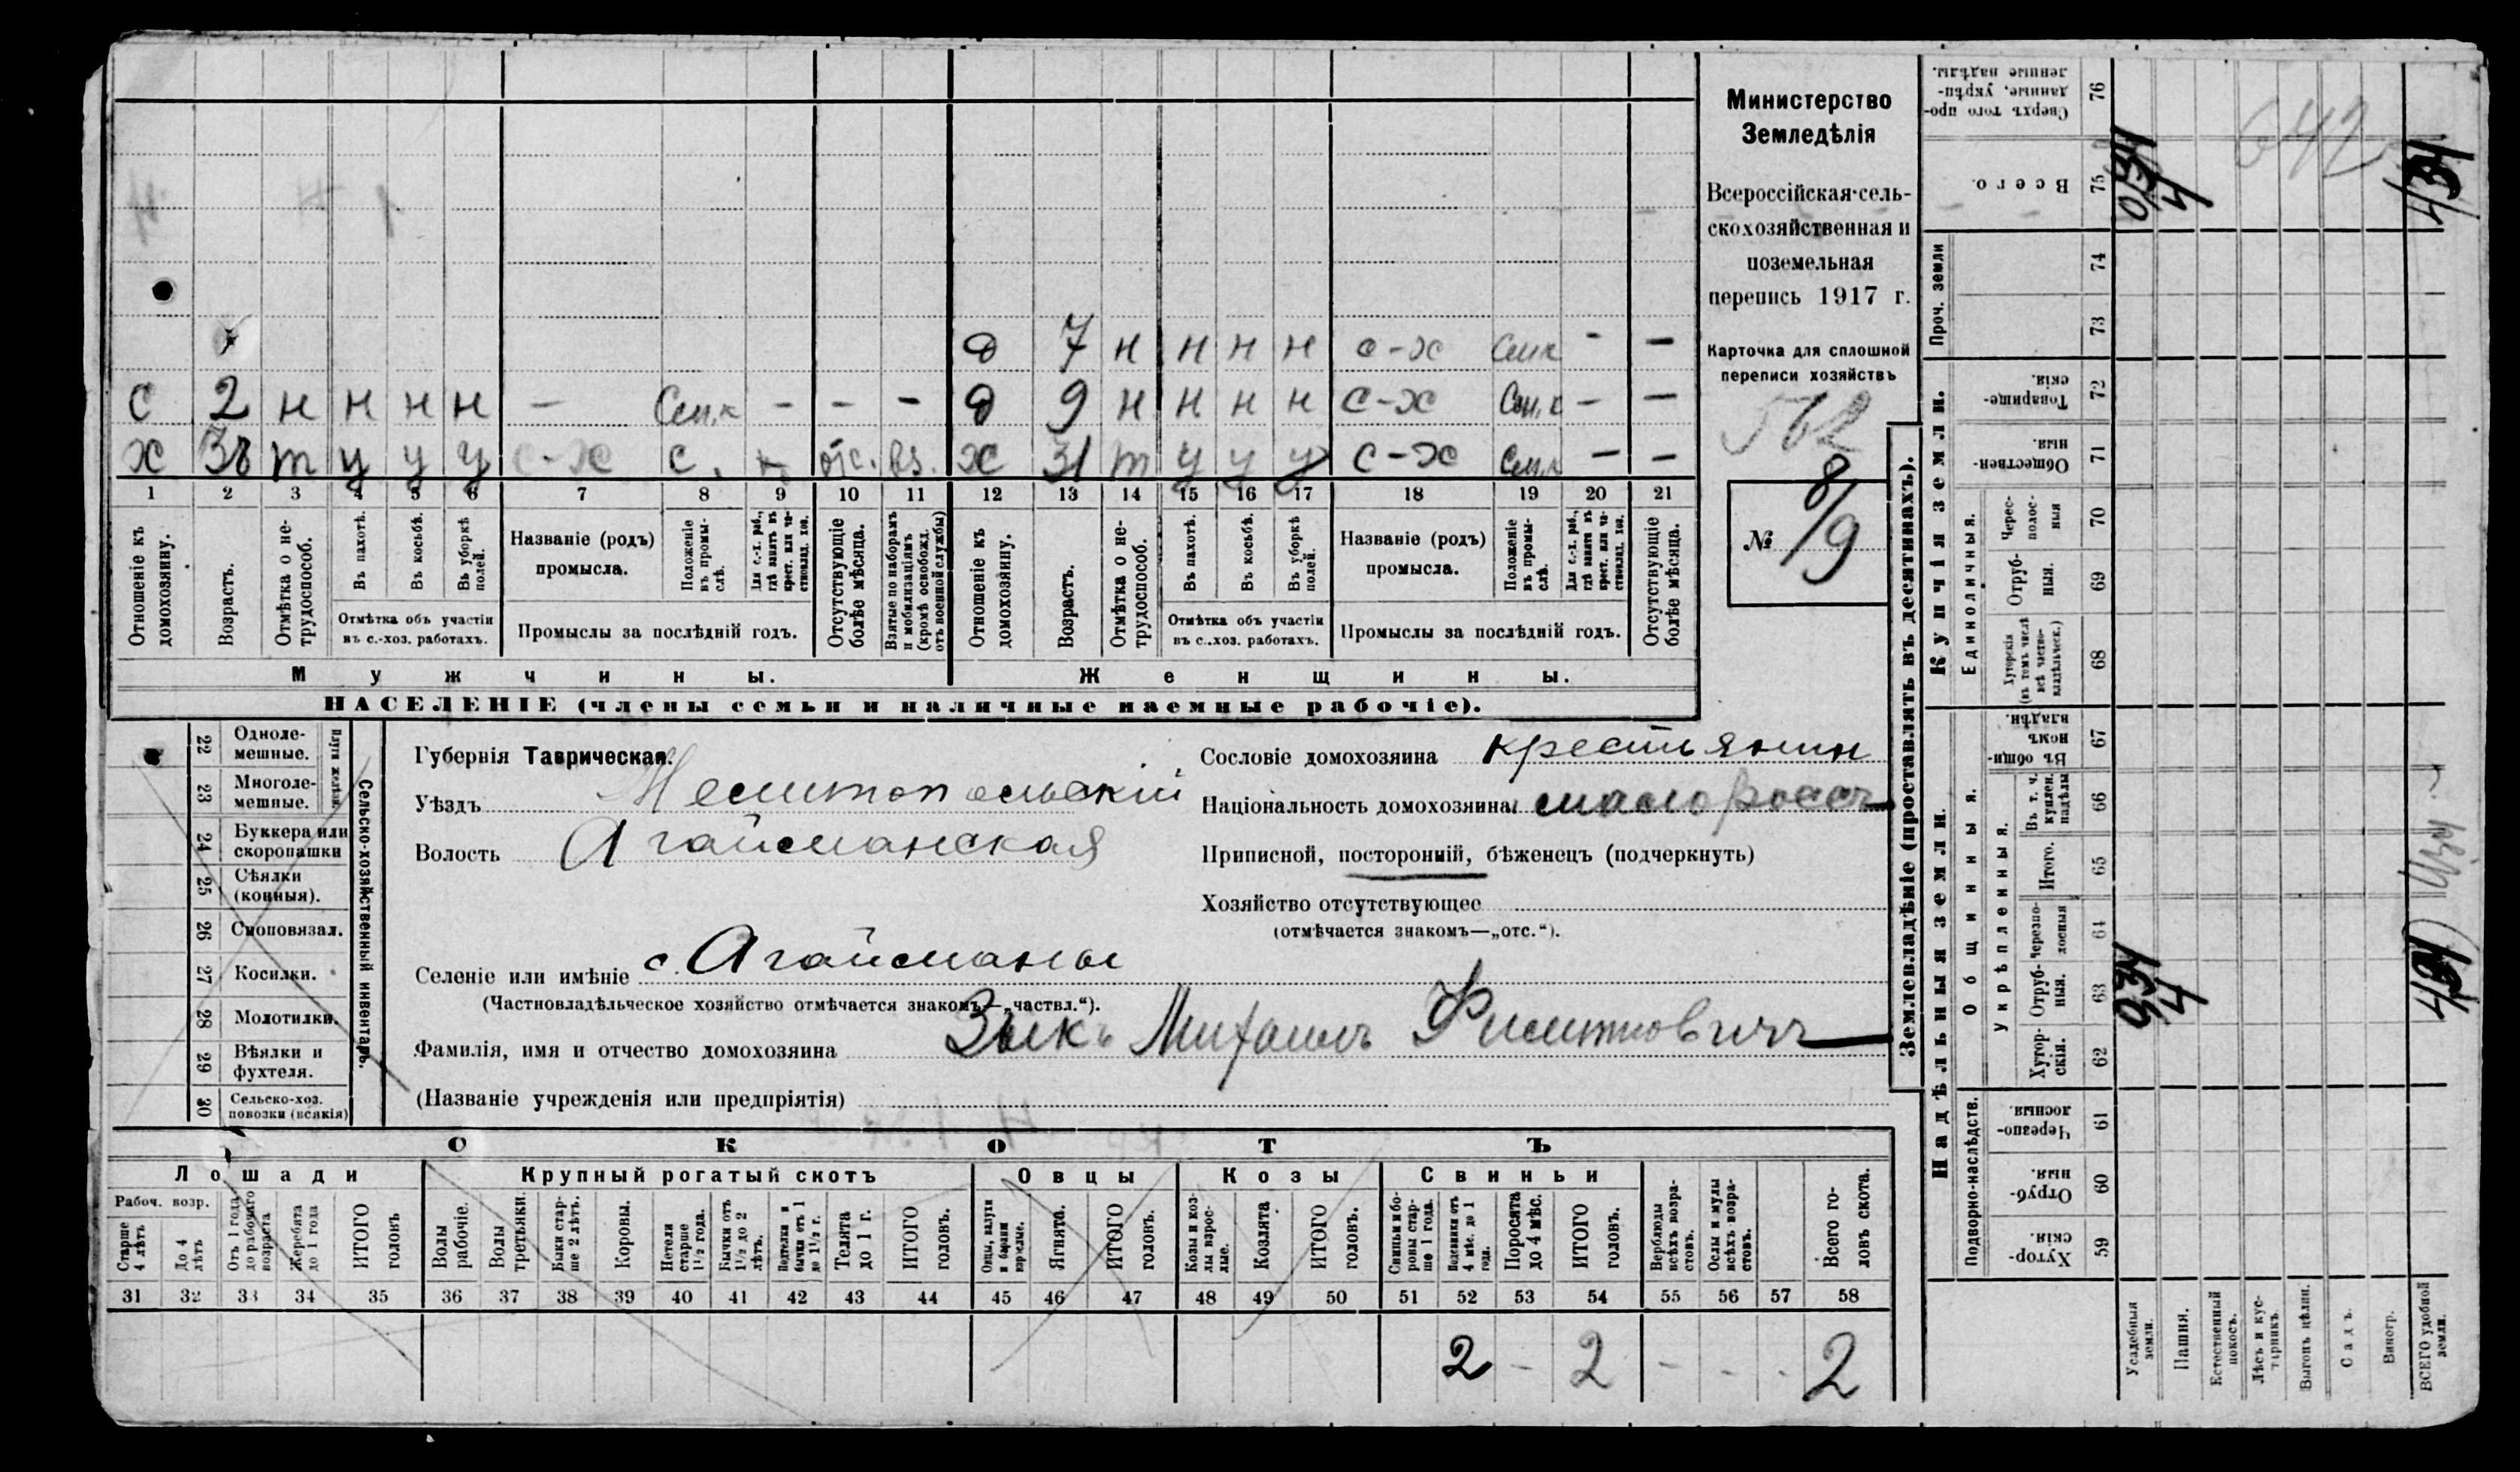 Министерство
Земледѣлія
Всероссійская сель-
скохозяйственная и
поземельная
перепись 1917 г.
Карточка для сплошной
переписи хозяйствъ
562
№ 8/9
д 7 н н н н с-х Сем.к - -
с 2 н н н н - Сем.к - - - д 9 н н н н с-х Сем.к - -
х т у у у с-х с. отс. вз. х 31 т у у у с-х Сем.к - -
1 2 3 4 5 6 7 8 9 10 11 12 13 14 15 16 17 18 19 20 21
Отношеніе къ домохозяину.
Возрастъ.
Отмѣтка о не-трудоспособ.
Въ пахотѣ.
Въ косьбѣ.
Въ уборкѣ полей.
Отмѣтка объ участіи въ с.-хоз. работахъ.
Названіе (родъ) промысла.
Положеніе въ промы-слѣ.
Для с.-х. раб., гдѣ занятъ въ крест. или ча-стновлад. хоз.
Промыслы за послѣдній годъ.
Отсутствующіе болѣе мѣсяца.
Взятые по наборамъ и мобилизаціямъ (кромѣ освобожд. отъ военной службы)
Отношеніе къ домохозяину.
Возрастъ.
Отмѣтка о не-трудоспособ.
Въ пахотѣ.
Въ косьбѣ.
Въ уборкѣ полей.
Отмѣтка объ участіи въ с.-хоз. работахъ.
Названіе (родъ) промысла.
Положеніе въ промы-слѣ.
Для с.-х. раб., гдѣ занята въ крест. или ча-стновлад. хоз.
Промыслы за послѣдній годъ.
Отсутствующіе болѣе мѣсяца.
Мужчины. Женщины.
НАСЕЛЕНІЕ (члены семьи и наличные наемные рабочіе).
22 Одноле-мешные.
23 Многоле-мешные.
Плуги желѣзн.
24 Буккера или скоропашки
25 Сѣялки (конныя).
26 Сноповязал.
27 Косилки.
28 Молотилки.
29 Вѣялки и фухтеля.
30 Сельско-хоз. повозки (всякія)
Сельско-хозяйственный инвентарь.
Губернія Таврическая.
Уѣздъ Мелитопольскій
Волость Агайманская
Селеніе или имѣніе с. Агайманы
(Частновладѣльческое хозяйство отмѣчается знакомъ—„частвл.“).
Фамилія, имя и отчество домохозяина Зыкъ Михаилъ Филипповичъ
(Названіе учрежденія или предпріятія)
Сословіе домохозяина крестьянин
Національность домохозяина малороссъ
Приписной, посторонній, бѣженецъ (подчеркнуть)
Хозяйство отсутствующее
(отмѣчается знакомъ—„отс.“).
СКОТЪ
Лошади Крупный рогатый скотъ Овцы Козы Свиньи
Рабоч. возр.
Старше 4 лѣтъ
До 4 лѣтъ
Отъ 1 года до рабочаго возраста
Жеребята до 1 года
ИТОГО головъ
Волы рабочіе.
Волы третьяки.
Быки стар-ше 2 лѣтъ.
Коровы.
Нетели старше 1½ года.
Бычки отъ 1½ до 2 лѣтъ.
Подтелки и бычки отъ 1 до 1½ г.
Телята до 1 г.
ИТОГО головъ.
Овцы, валухи и бараны взрослые.
Ягнята.
ИТОГО головъ.
Козы и коз-лы взрос-лые.
Козлята
ИТОГО головъ.
Свиньи и бо-ровы стар-ше 1 года.
Подсвинки отъ 4 мѣс. до 1 года.
Поросята до 4 мѣс.
ИТОГО головъ.
Верблюды всѣхъ возра-стовъ.
Ослы и мулы всѣхъ возра-стовъ.
Всего го-ловъ скота.
31 32 33 34 35 36 37 38 39 40 41 42 43 44 45 46 47 48 49 50 51 52 53 54 55 56 57 58
2 - 2 - - - 2
Землевладѣніе (проставлять въ десятинахъ).
Купчія земли.
Надѣльныя земли.
Проч. земли
Единоличныя.
Общинныя.
Укрѣпленныя.
Подворно-наслѣдств.
76 Сверхъ того про-данные, укрѣп-ленные надѣлы.
75 Всего.
74
73
72 Товарище-скія.
71 Обществен-ныя.
70 Черес-полос-ныя
69 Отруб-ныя.
68 Хуторскія (въ томъ числѣ всѣ частно-владѣльческ.)
67 Въ общи-номъ владѣн.
66 Въ т. ч. куплен. надѣлы
65 Итого.
64 Черезпо-лосныя
63 Отруб-ныя.
62 Хутор-скія.
61 Черезпо-лосныя.
60 Отруб-ныя.
59 Хутор-скія.
Усадебныя земли.
Пашня.
Естественный покосъ.
Лѣсъ и кус-тарникъ.
Выгонъ цѣлин.
Садъ.
Виногр.
ВСЕГО удобной земли.
642